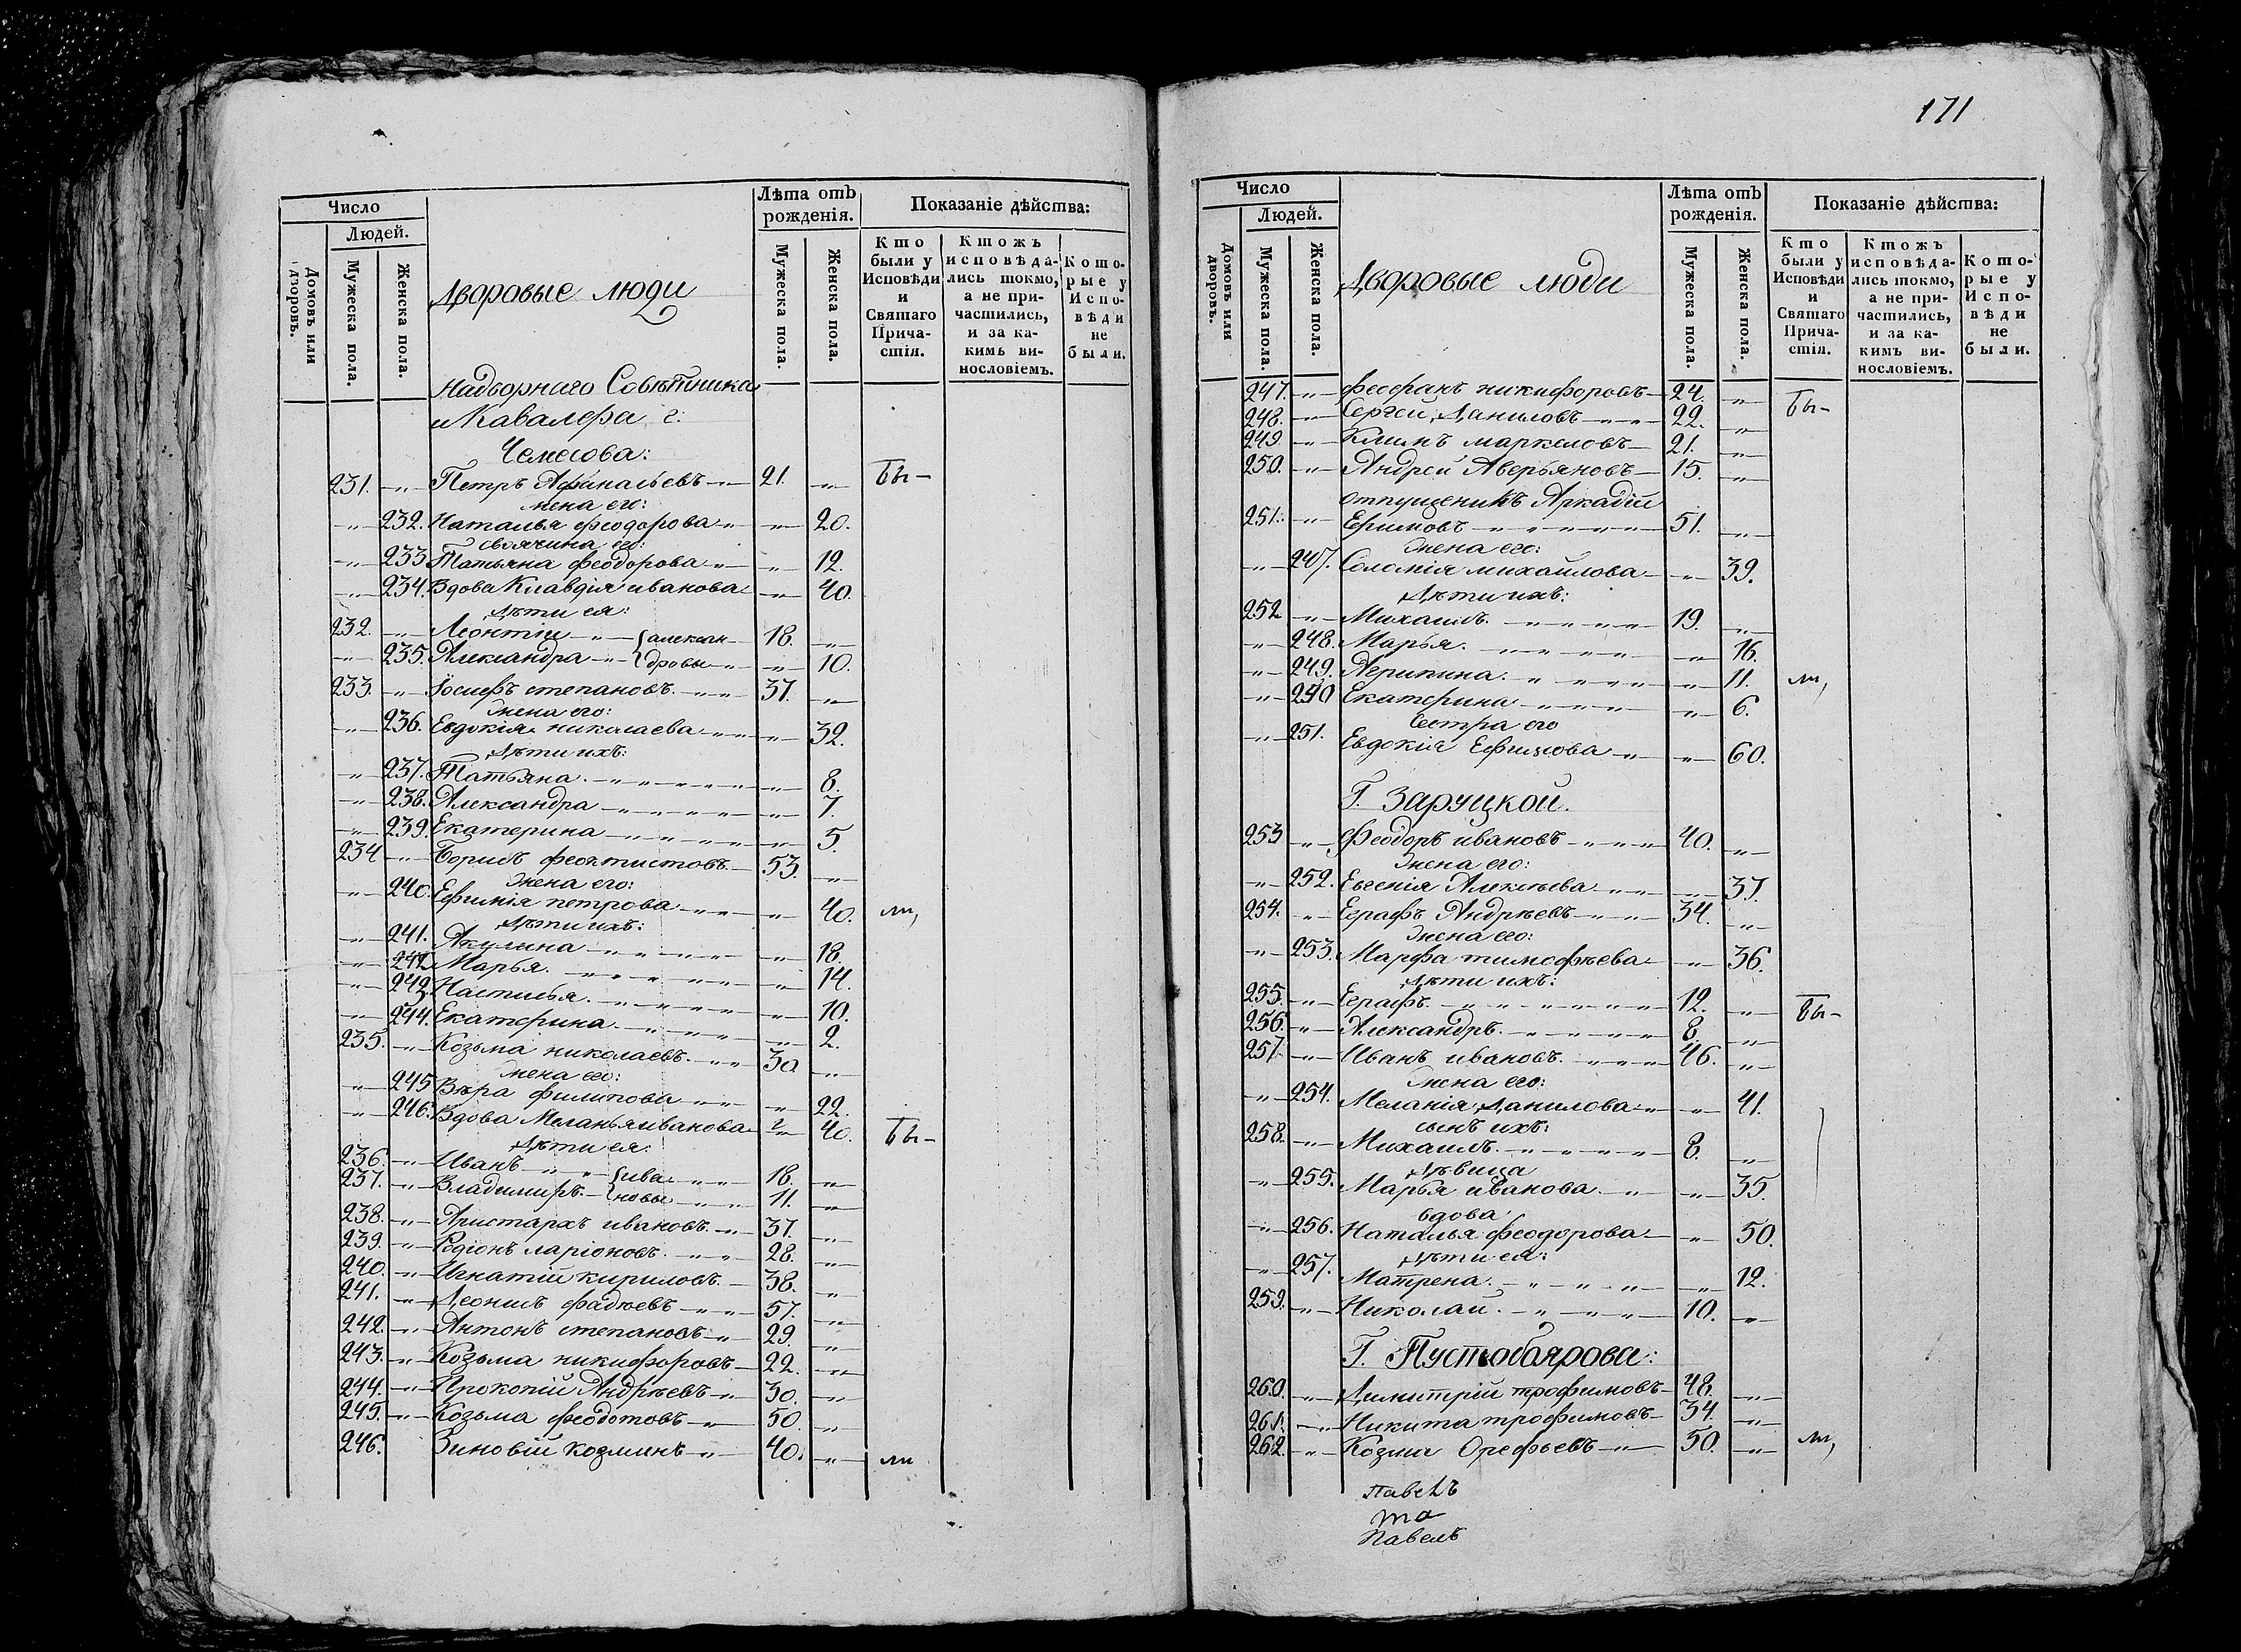 Число
Людей.
Домовъ или дворовъ.
Мужеска пола.
Женска пола.
Дворовые люди
Лѣта отъ рожденія.
Мужеска пола.
Женска пола.
Показаніе дѣйства:
Кто были у Исповѣди и Святаго Причастія.
Ктожъ исповѣдались токмо, а не причастились, и за какимъ виносло­віемъ.
Которые у Исповѣди не были.
Надворнаго Совѣтника
и Кавалера г:
Чемесова:
231. -„- Петръ Афанасьевъ -„- 21. -„- бы-
жена его:
-„- 232. Наталья феодорова -„- -„- 20.
своячина его:
-„- 233 Татьяна феодорова -„- -„- 12.
-„- 234. Вдова Клавдія иванова -„- 40.
дѣти ея:
232. -„- Леонтій -„- {алексан- 18. -„-
-„- 235. Александра -„- {дровы -„- -„- 10.
233. -„- Іосифъ степановъ. -„-„- 37. -„-
жена его:
-„- 236. Евдокія николаева -„-„- -„- 32.
дѣти ихъ:
-„- 237. Татьяна. -„-„-„-„- -„- 8.
-„- 238. Александра -„-„-„-„- -„- 7.
-„- 239. Екатерина -„-„-„-„- -„- 5.
234 -„- Борисъ феоктистовъ. 53. -„-
жена его:
-„- 240. Ефимія петрова -„-„- -„- 40. ли,
дѣти ихъ:
-„- 241. Акулина -„-„-„-„- -„- 18.
-„- 242 Марья. -„-„-„-„- -„- 14.
-„- 243. Настасья. -„-„-„-„- -„- 10.
-„- 244. Екатерина -„-„-„- -„- 2.
235. -„- Козьма николаевъ. -„-„- 30 -„-
жена его:
-„- 245 Вѣра филипова -„-„- -„- 22.
-„- 246. Вдова Меланья иванова -„- 40. бы-
дѣти ея:
236. -„- Иванъ -„-„- {ива -„-„- 18. -„-
237. -„- Владимиръ. -{новы -„-„- 11. -„-
238. -„- Аристархъ ивановъ. -„- 37. -„-
239. -„- Родіонъ ларіоновъ. -„-„- 28. -„-
240. -„- Игнатій кириловъ. - 38. -„-
241. -„- Леонидъ фадѣевъ -„-„- 57. -„-
242. -„- Антонъ степановъ -„- 29. -„-
243. -„- Козьма никифоровъ - 22. -„-
244. -„- Прокопій Андрѣевъ -„- 30. -„-
245. -„- Козьма феодотовъ -„- 50. -„-
246. Зиновій козминъ -„- 40. -„- ли
171
Число
Людей.
Домовъ или дворовъ.
Мужеска пола.
Женска пола.
Дворовые люди
Лѣта отъ рожденія.
Мужеска пола.
Женска пола.
Показаніе дѣйства:
Кто были у Исповѣди и Святаго Причастія.
Ктожъ исповѣдались токмо, а не причастились, и за какимъ виносло­віемъ.
Которые у Исповѣди не были.
247. -„- феофанъ никифоровъ - 24. -„- бы-
248. -„- Сергей Даниловъ -„-„- 22. -„-
249 -„- Климъ маркеловъ - 21. -„-
250. -„- Андрей Аверьяновъ - 15. -„-
отпущеникъ Аркадій
251. -„- Ефимовъ -„-„-„-„- 51. -„-
жена его:
-„- 247. Соломія михайлова -„- 39.
дѣти ихъ:
252 -„- Михаилъ. -„-„-„-„- 19. -„-
-„- 248. Марья. -„-„-„-„- -„- 16.
-„- 249. Агрипина. -„-„-„-„- -„- 11. ли,
-„- 240 Екатерина -„-„-„- -„- 6.
Сестра его
-„- 251. Евдокія Ефимова -„- -„- 60.
Г. Заруцкой.
253 -„- феодоръ ивановъ -„-„-„- 40. -„-
жена его:
-„- 252. Евгенія Алексѣева -„-„- -„- 37.
254. -„- Еграфъ Андрѣевъ -„-„- 34. -„-
жена его:
-„- 253. Марфа тимофѣева -„- 36.
дѣти ихъ:
255. -„- Еграфъ. -„-„-„-„- 12. -„- бы-
256. -„- Александръ. -„-„-„-„- 8. -„-
257. -„- Иванъ ивановъ. -„-„-„- 46. -„-
жена его:
-„- 254. Меланія Данилова -„- -„- 41.
сынъ ихъ:
258. -„- Михаилъ. -„-„-„-„- 8. -„-
дѣвица
-„- 255. Марья иванова. -„- -„- 35.
вдова
-„- 256. Наталья феодорова -„- 50.
дѣти ея:
-„- 257. Матрена. -„-„-„-„- -„- 12.
259. -„- Николай. -„-„-„- 10. -„-
Г. Пустобоярова:
260. -„- Димитрій трофимовъ - 48. -„-
261. -„- Никита трофимовъ - 34. -„-
262. -„- Козма Орефьевъ -„- 50. -„- ли,
Павелъ
та
Павелъ